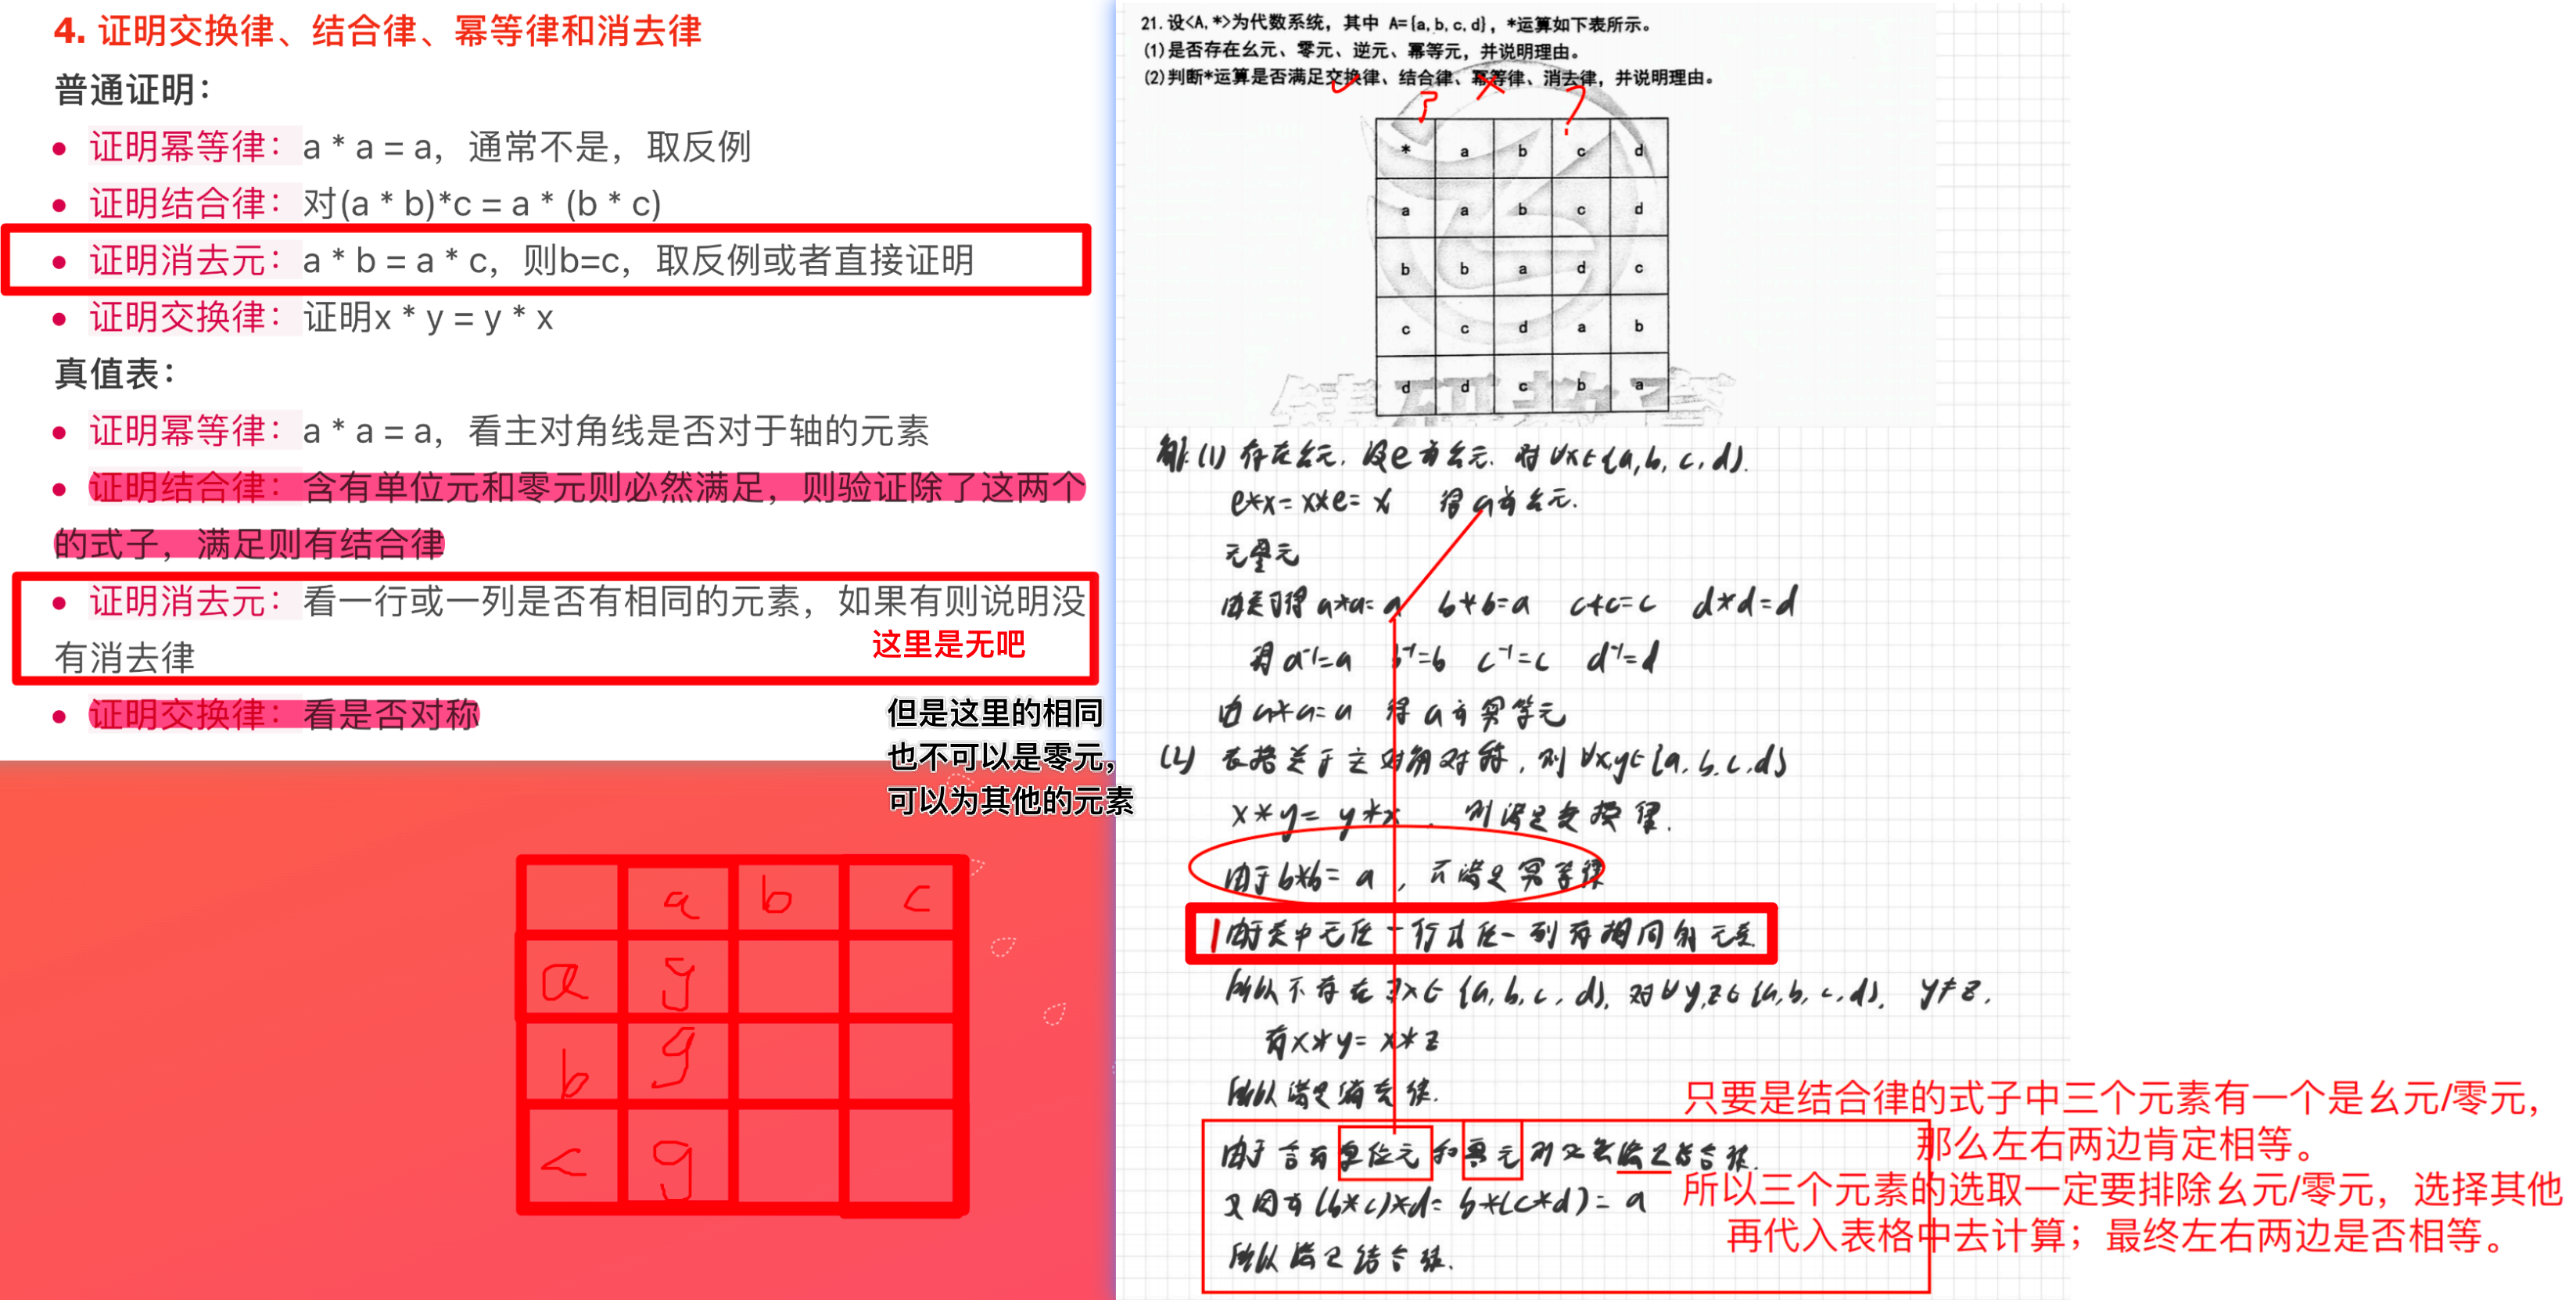 4. 证明交换律、结合律、幂等律和消去律
普通证明：
• 证明幂等律：a * a = a，通常不是，取反例
• 证明结合律：对(a * b)*c = a * (b * c)
• 证明消去元：a * b = a * c，则b=c，取反例或者直接证明
• 证明交换律：证明x * y = y * x
真值表：
• 证明幂等律：a * a = a，看主对角线是否对于轴的元素
• 证明结合律：含有单位元和零元则必然满足，则验证除了这两个
的式子，满足则有结合律
• 证明消去元：看一行或一列是否有相同的元素，如果有则说明没
有消去律
这里是无吧
• 证明交换律：看是否对称
但是这里的相同
也不可以是零元，
可以为其他的元素
a b c
a y
b y
c y
21.设<A,*>为代数系统，其中 A={a,b,c,d}，*运算如下表所示。
(1)是否存在幺元、零元、逆元、幂等元，并说明理由。
(2)判断*运算是否满足交换律、结合律、幂等律、消去律，并说明理由。
* a b c d
a a b c d
b b a d c
c c d a b
d d c b a
解:(1) 存在幺元. 设e为幺元. 对∀x∈{a,b,c,d}.
e*x=x*e=x 得a为幺元.
无零元
由表可得 a*a=a b*b=a c*c=c d*d=d
得a⁻¹=a b⁻¹=b c⁻¹=c d⁻¹=d
由a*a=a 得a为幂等元
(2) 表格关于主对角对称，则∀x,y∈{a,b,c,d}
x*y=y*x ，则满足交换律.
由于b*b=a，不满足幂等律
由于表中无任一行或任一列有相同的元素
所以不存在∃x∈{a,b,c,d}, 对∀y,z∈{a,b,c,d}, y≠z,
有x*y=x*z
所以满足消去律.
由于含有单位元和零元则必然满足结合律.
又因为(b*c)*d=b*(c*d)=a
所以满足结合律.
只要是结合律的式子中三个元素有一个是幺元/零元，
那么左右两边肯定相等。
所以三个元素的选取一定要排除幺元/零元，选择其他
再代入表格中去计算；最终左右两边是否相等。